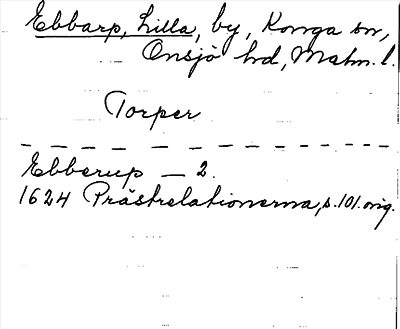 Ebbarp, Lilla, by, Konga sn,
Onsjö hd, Malm. l.
Torper
Ebberup — 2.
1624 Prästrelationerna, s. 101. orig.